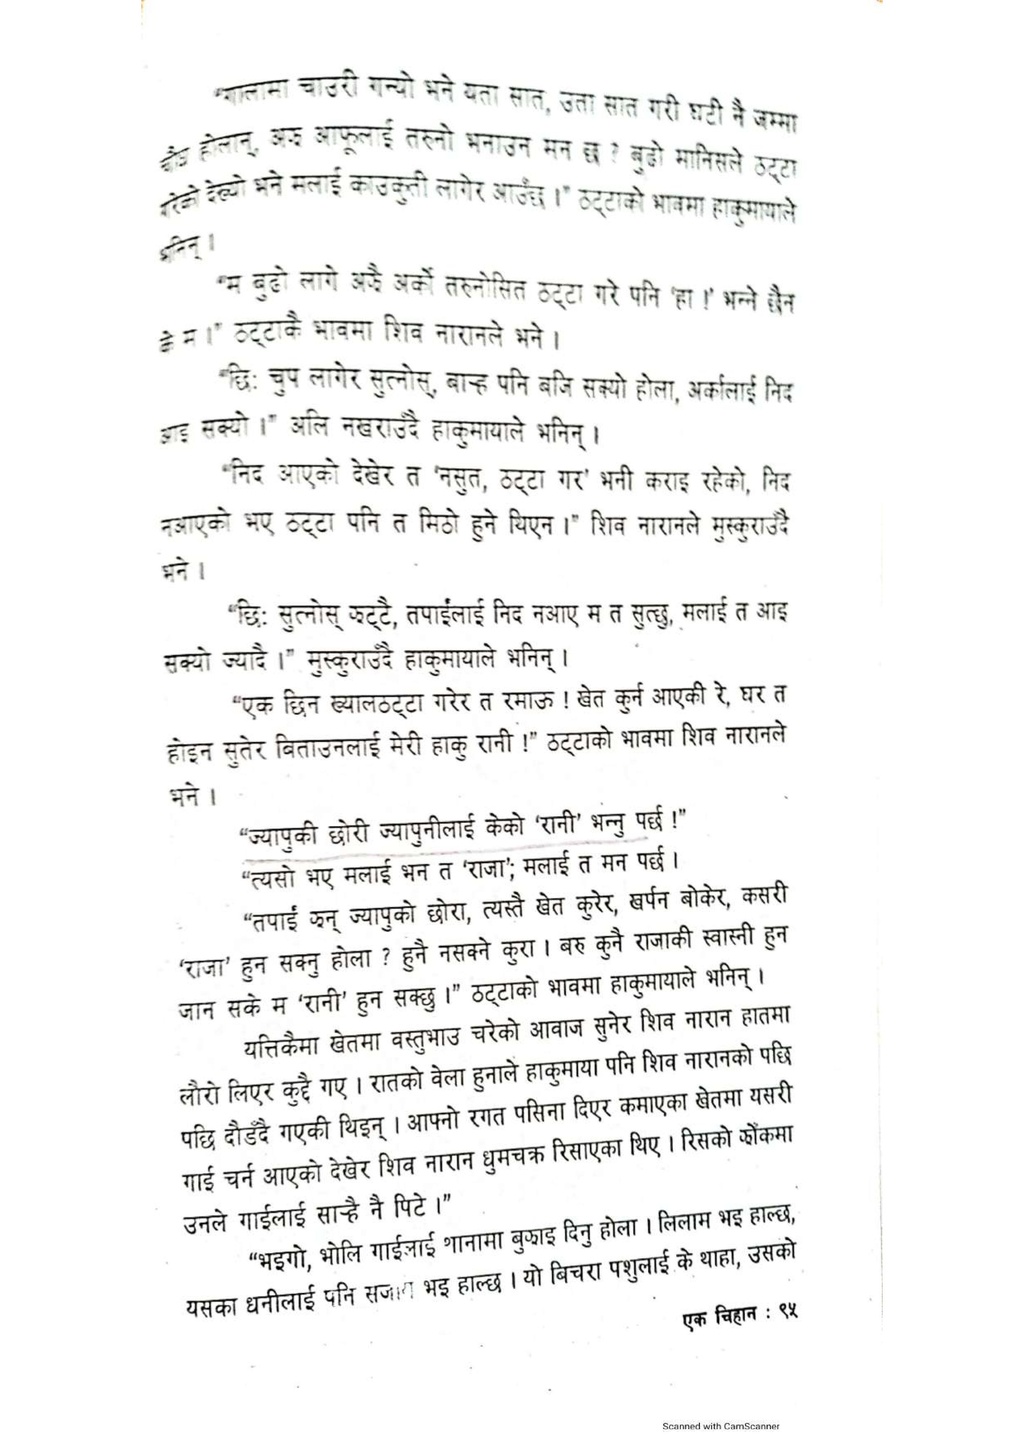 “गालामा चाउरी गन्यो भने यता सात, उता सात गरी घटी नै जम्मा
चौध होलान्, अझ आफूलाई तरुनो भनाउन मन छ ? बुढो मानिसले ठट्टा
गरेको देख्यो भने मलाई काउकुती लागेर आउँछ ।” ठट्टाको भावमा हाकुमायाले
भनिन् ।
“म बुढो लागे अझै अर्को तरुनोसित ठट्टा गरे पनि ‘हा !’ भन्ने छैन
के म ।” ठट्टाकै भावमा शिव नारानले भने ।
“छि: चुप लागेर सुत्नोस्, बाऱ्ह पनि बजि सक्यो होला, अर्कालाई निद
आइ सक्यो ।” अलि नखराउँदै हाकुमायाले भनिन् ।
“निद आएको देखेर त ‘नसुत, ठट्टा गर’ भनी कराइ रहेको, निद
नआएको भए ठट्टा पनि त मिठो हुने थिएन ।” शिव नारानले मुस्कुराउँदै
भने ।
“छि: सुत्नोस् झट्टै, तपाईंलाई निद नआए म त सुत्छु, मलाई त आइ
सक्यो ज्यादै ।” मुस्कुराउँदै हाकुमायाले भनिन् ।
“एक छिन ख्यालठट्टा गरेर त रमाऊ ! खेत कुर्न आएकी रे, घर त
होइन सुतेर बिताउनलाई मेरी हाकु रानी !” ठट्टाको भावमा शिव नारानले
भने ।
“ज्यापुकी छोरी ज्यापुनीलाई केको ‘रानी’ भन्नु पर्छ !”
“त्यसो भए मलाई भन त ‘राजा’; मलाई त मन पर्छ ।
“तपाईं झन् ज्यापुको छोरा, त्यस्तै खेत कुरेर, खर्पन बोकेर, कसरी
‘राजा’ हुन सक्नु होला ? हुनै नसक्ने कुरा । बरु कुनै राजाकी स्वास्नी हुन
जान सके म ‘रानी’ हुन सक्छु ।” ठट्टाको भावमा हाकुमायाले भनिन् ।
यत्तिकैमा खेतमा वस्तुभाउ चरेको आवाज सुनेर शिव नारान हातमा
लौरो लिएर कुद्दै गए । रातको वेला हुनाले हाकुमाया पनि शिव नारानको पछि
पछि दौडँदै गएकी थिइन् । आफ्नो रगत पसिना दिएर कमाएका खेतमा यसरी
गाई चर्न आएको देखेर शिव नारान धुमचक्र रिसाएका थिए । रिसको झोंकमा
उनले गाईलाई साऱ्है नै पिटे ।”
“भइगो, भोलि गाईलाई थानामा बुझाइ दिनु होला । लिलाम भइ हाल्छ,
यसका धनीलाई पनि सजाय भइ हाल्छ । यो बिचरा पशुलाई के थाहा, उसको
एक चिहान : ९५
Scanned with CamScanner